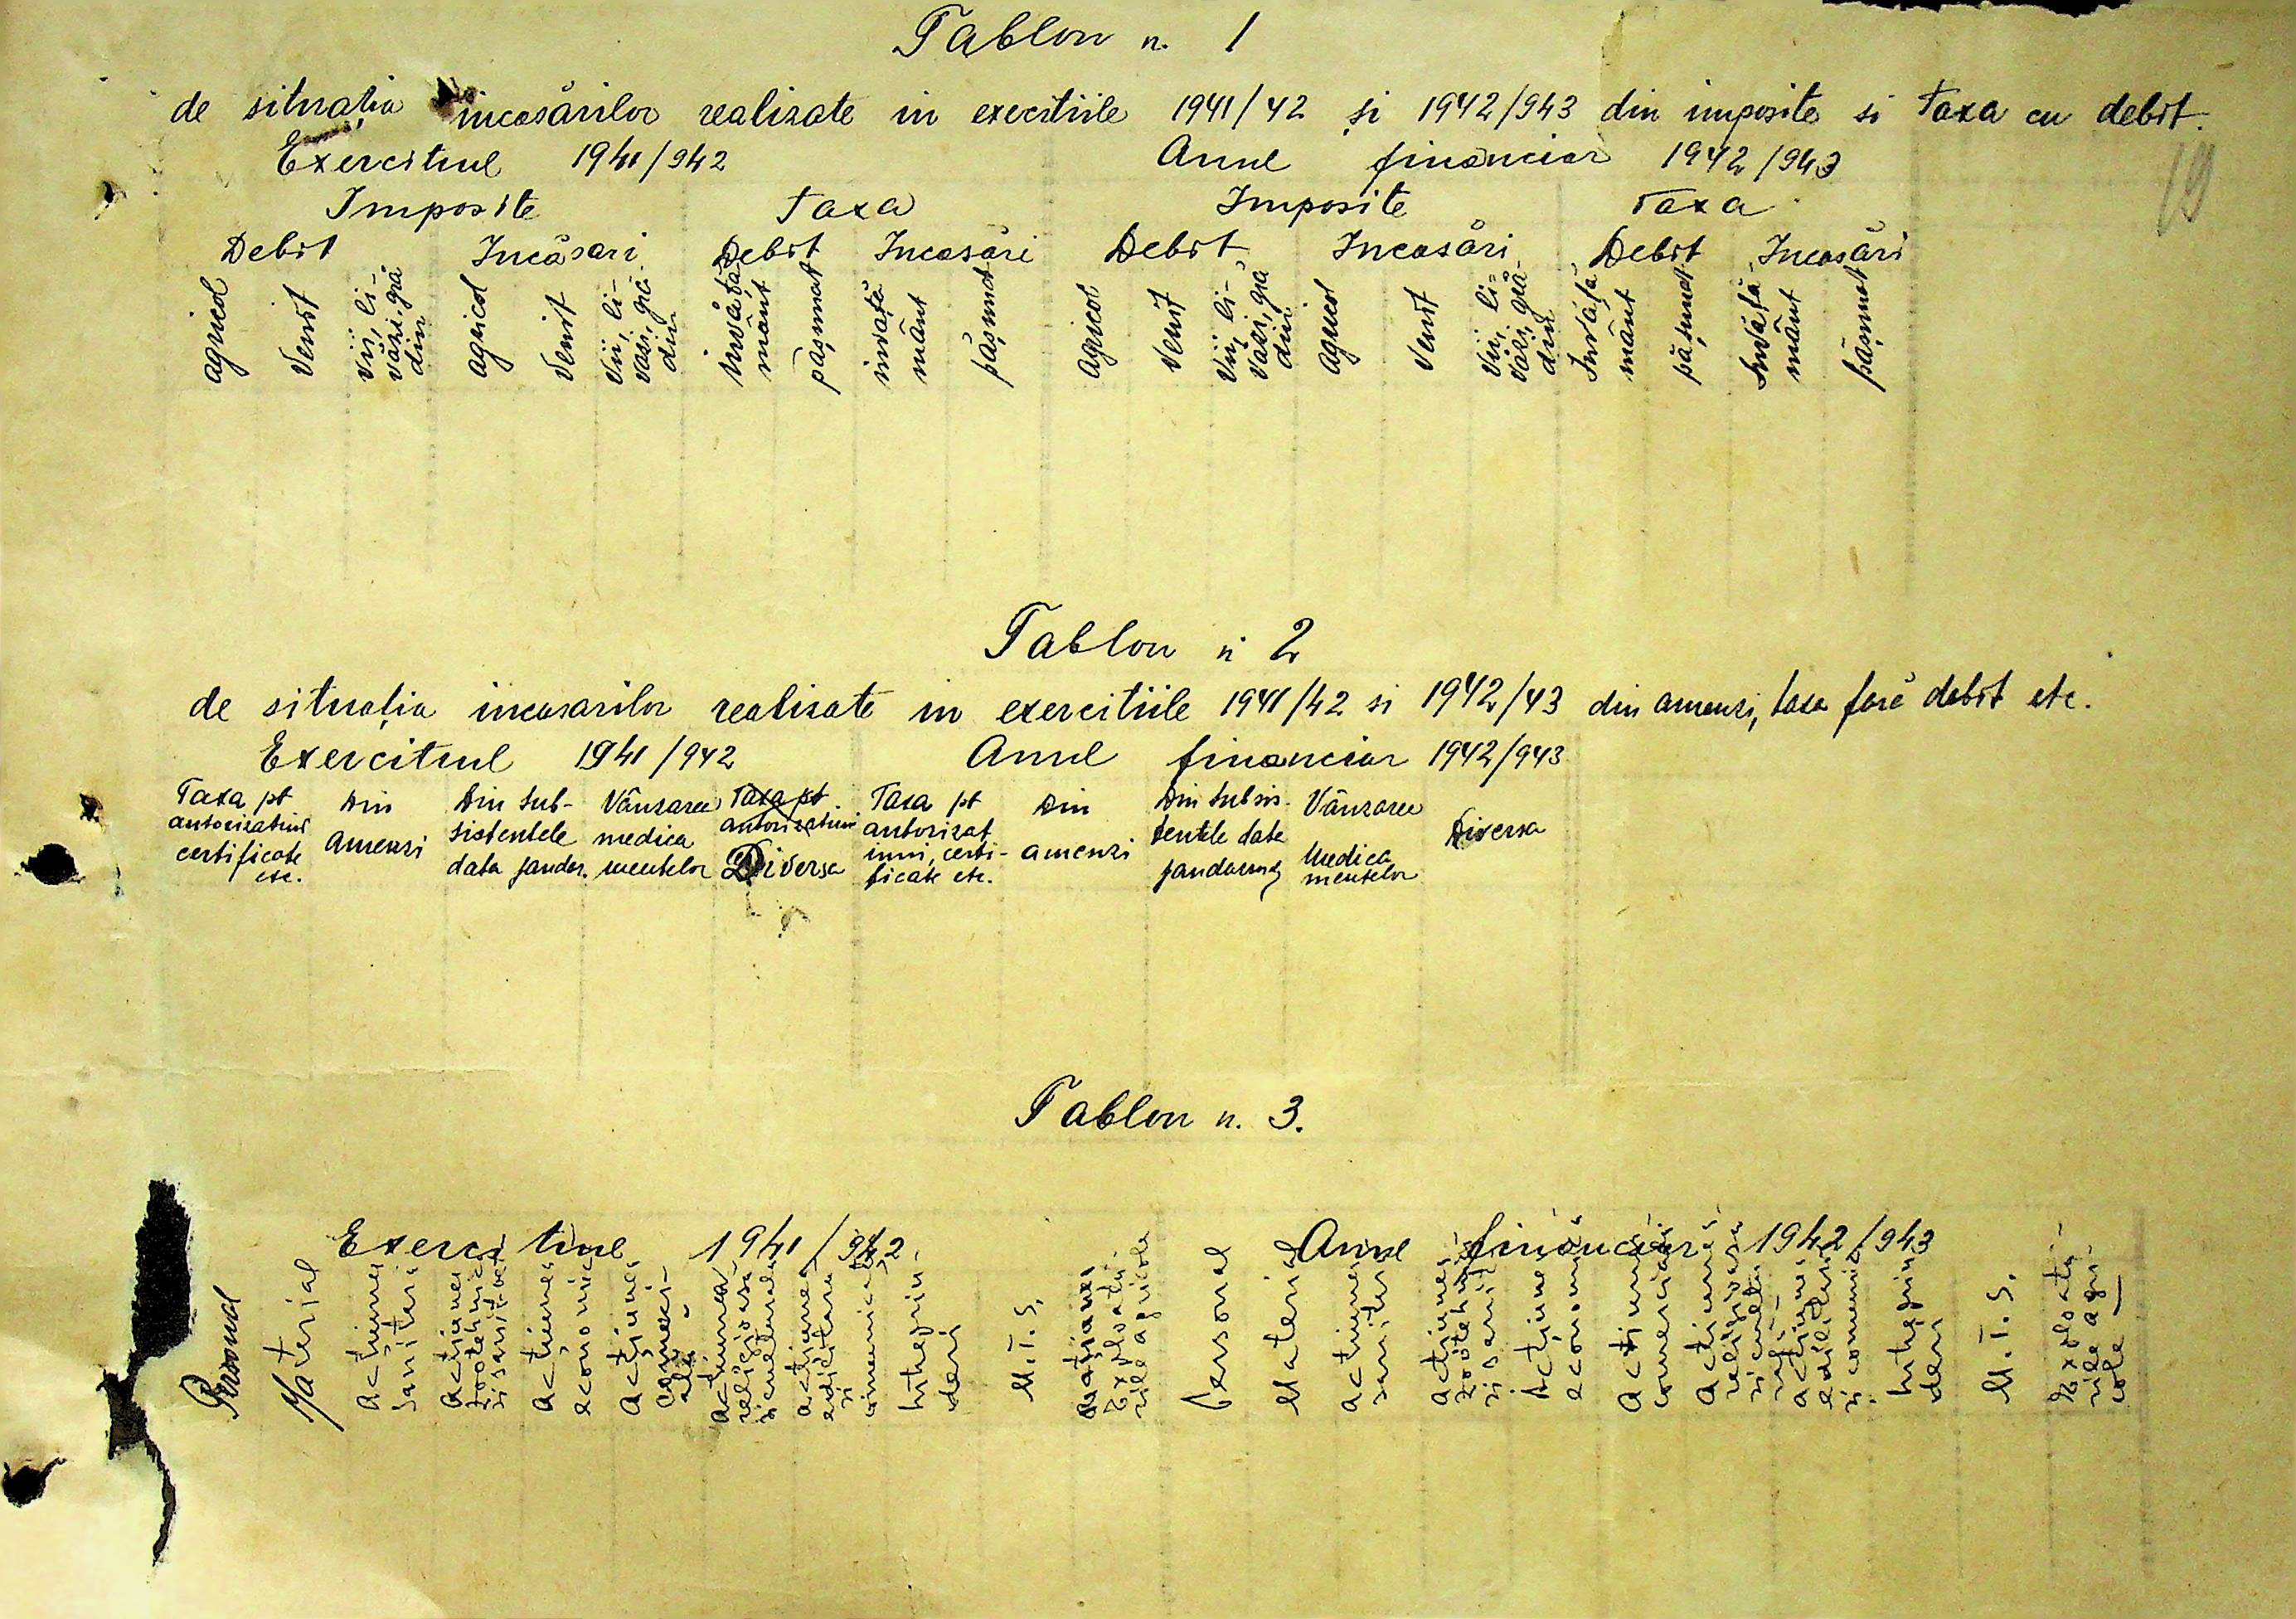 Tablou n. 1
19
de situația incasărilor realizate in exercitiile 1941/42 și 1942/943 din imposite si Taxa cu debit.
Exercitiul 1941/942 Anul financiar 1942/943
Imposite Taxa Imposite Taxa
Debit Incăsari Debit Incasări Debit Incasări Debit Incasări
agricol
Venit
Vii, li-
văsi, gră
din
agricol
Venit
Vii, li-
vasi, gră
din
învăță
mânt
pășunat
invăță
mânt
pășunat
agricol
Venit
Vii, li-
vasi, gră
din
agricol
Venit
Vii, li-
văsi, gră-
din
Învăță
mânt
pășunat
Învăță
mânt
pășunat
Tablou n 2
de situația incasarilor realizate in exercitiile 1941/42 si 1942/43 din amenzi, taxa fară debit etc.
Exercitiul 1941/942 Anul financiar 1942/943
Taxa pt
autorizatiuni
certificate
etc.
Din
amenzi
Din sub-
sistentele
date jandar.
Vânzarea
medica
mentelor
Taxa pt
autorizatiuni
Diversa
Taxa pt
autorizat
iuni, certi-
ficate etc.
Din
amenzi
Din subsis-
tentele date
jandarmi
Vânzarea
Medica
mentelor
Diversa
Tablou n. 3.
Exercitiul 1941/942 Anul financiar 1942/943
Personal
Material
Actiunea
sanitara
Actiunea
zootehnica
si
Actiunea
economica
Actiunea
Actiunea
religioasa
si culturala
actiunea
edilitara
si
comunicatii
Intreprin
deri
M.I.S.
Exploatari
le agricole
Personal
Material
actiunea
sanitara
actiunea
zootehnica
si
Actiunea
economica
Actiunea
comerciala
Actiunea
religioasa
si cultu
rala
actiunea
edilitara
si comunic
Intreprin
deri
M.I.S.
Exploata-
rile agri-
cole